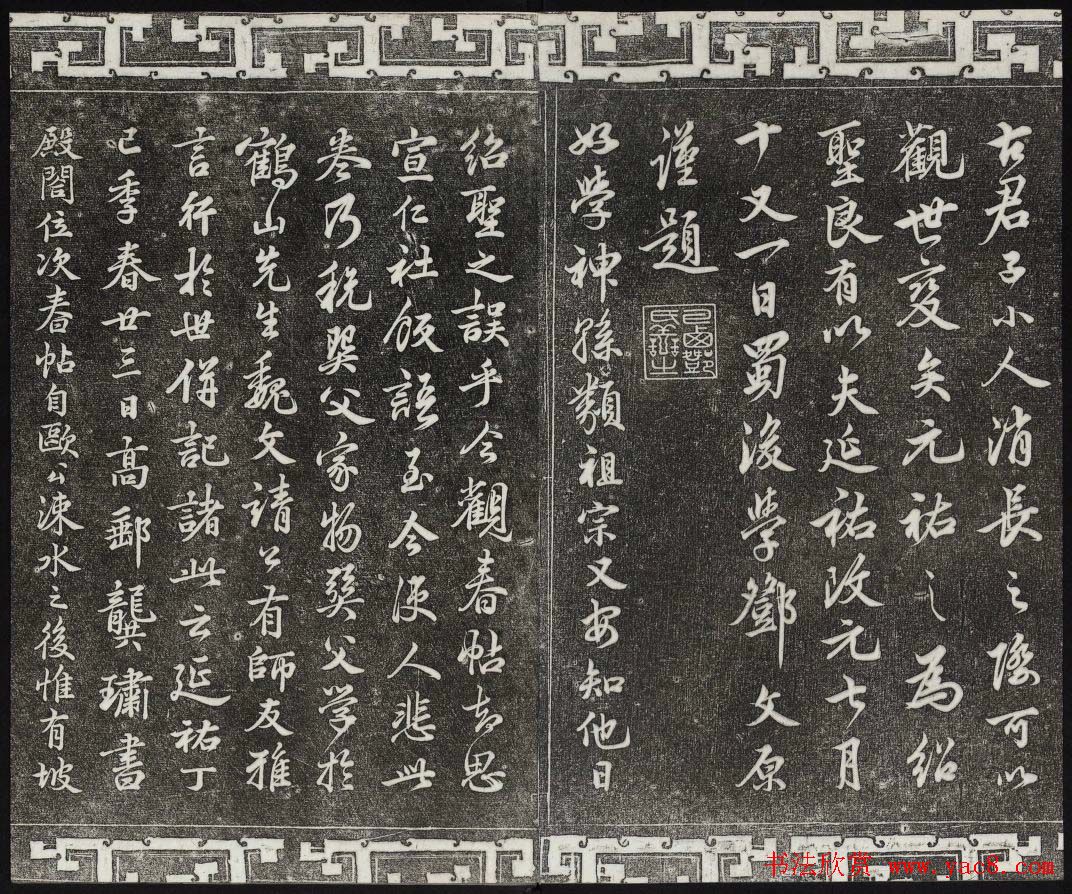 古君子小人消長之際可以
觀世變矣元祐之為紹
聖良有以夫延祐改元七月
十又一日蜀後學鄧文原
謹題
好學神孫類祖宗又安知他日
紹聖之誤乎今觀春帖切思
宣仁社飯語至今使人悲此
卷乃税巽父家物巽父學於
鶴山先生魏文請公有師友雅
言行於世併記諸此云延祐丁
巳季春廿三日高郵龔璛書
殿閤位次春帖自歐公涑水之後惟有坡
书法欣赏 www.yac8.com